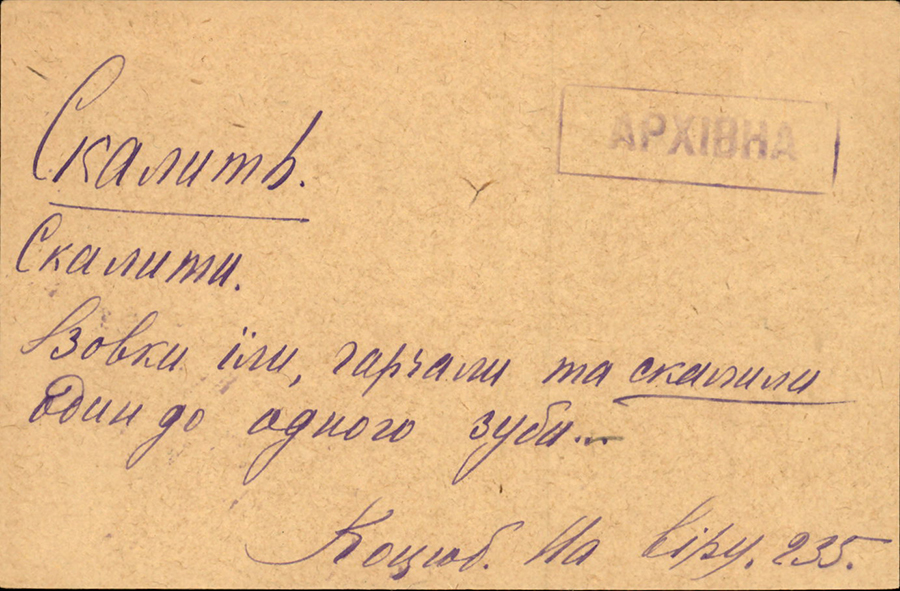 АРХІВНА
Скалить.
Скалити.
Вовки їли, гарчали та скалили
один до одного зуби...
Коцюб. На віру. 235.